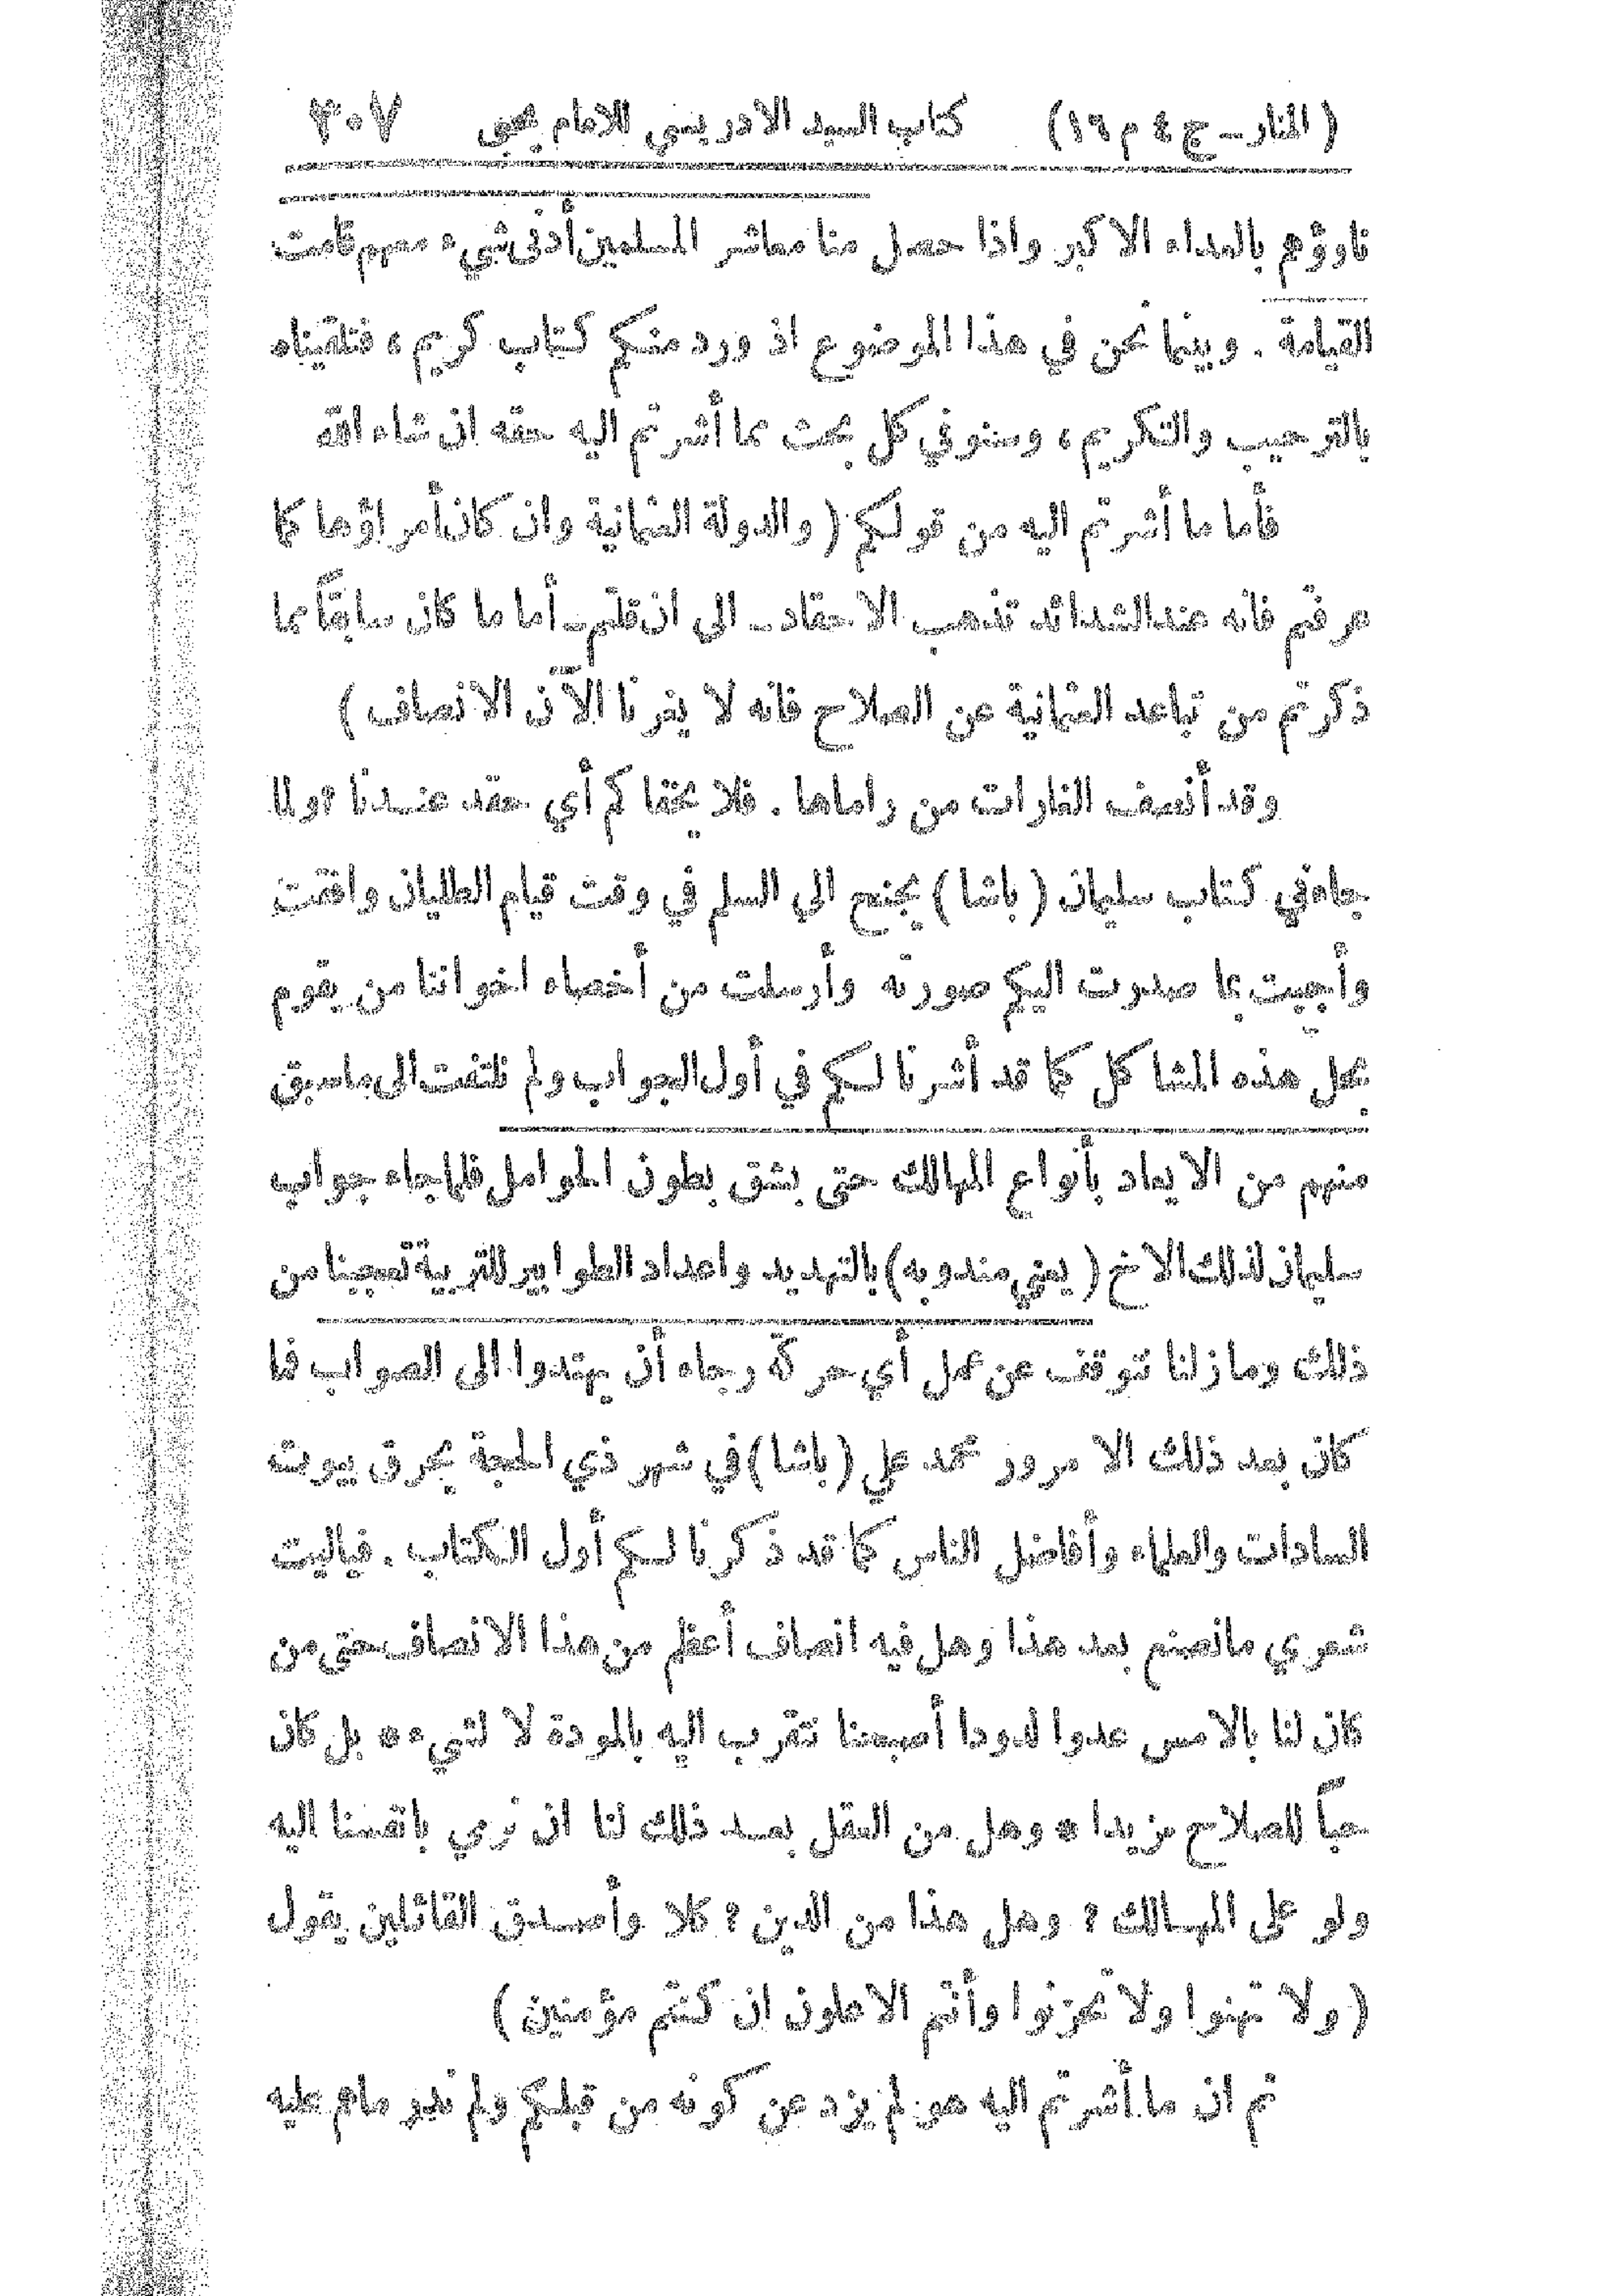 (المنار ــ ج ٤ م ١٦) كتاب السيد الادريسي للامام يحيى ٣٠٧
ناوؤهم بالعداء الاكبر واذا حصل منا معاشر المسلمين أدنى شيء معهم قامت
القيامة . وبينما نحن في هذا الموضوع اذ ورد منكم كتاب كريم ، فتلقيناه
بالترحيب والتكريم ، وسنوفي كل بحث مما أشرتم اليه حقه ان شاء الله
فأما ما أشرتم اليه من قولكم ( والدولة العثمانية وان كان أمراؤها كما
عرفتم فانه عند الشدائد تذهب الاحقاد ــ الى ان قلتم ــ أما ما كان سابقاً مما
ذكرتم من تباعد العثمانية عن الصلاح فانه لا يغرنا الآن الانصاف )
وقد أنصف القارات من راماها . فلا يخفاكم أي حقد عندنا ولما
جاء في كتاب سليمان ( باشا ) يجنح الي السلم في وقت قيام الطليان وافقت
وأجبت بما صدرت اليكم صورته وأرسلت من أخصاء اخواننا من يقوم
بحل هذه المشاكل كما قد أشرنا لكم في أول الجواب ولم نلتفت الى ماسبق
منهم من الايعاد بأنواع المهالك حتى بشق بطون الحوامل فلما جاء جواب
سليمان لذلك الاخ ( يعني مندوبه ) بالتهديد واعداد الطوابير للتربية تعجبنا من
ذلك وما زلنا نتوقف عن عمل أي حركة رجاء أن يهتدوا الى الصواب فما
كان بعد ذلك الا مرور محمد علي ( باشا ) في شهر ذي الحجة بحرق بيوت
السادات والعلماء وأفاضل الناس كما قد ذكرنا لكم أول الكتاب . فياليت
شعري مانصنع بعد هذا وهل فيه انصاف أعظم من هذا الانصاف حتى من
كان لنا بالامس عدوا لدودا أصبحنا نتقرب اليه بالمودة لا لشيء * بل كان
حباً للصلاح مزيدا * وهل من العقل بعد ذلك لنا ان نرمي بانفسنا اليه
ولو على المهالك ? وهل هذا من الدين ? كلا وأصدق القائلين يقول
( ولا تهنوا ولا تحزنوا وأنتم الاعلون ان كنتم مؤمنين )
ثم ان ما أشرتم اليه هو لم يزد عن كونه من قبلكم ولم ندر ماهم عليه